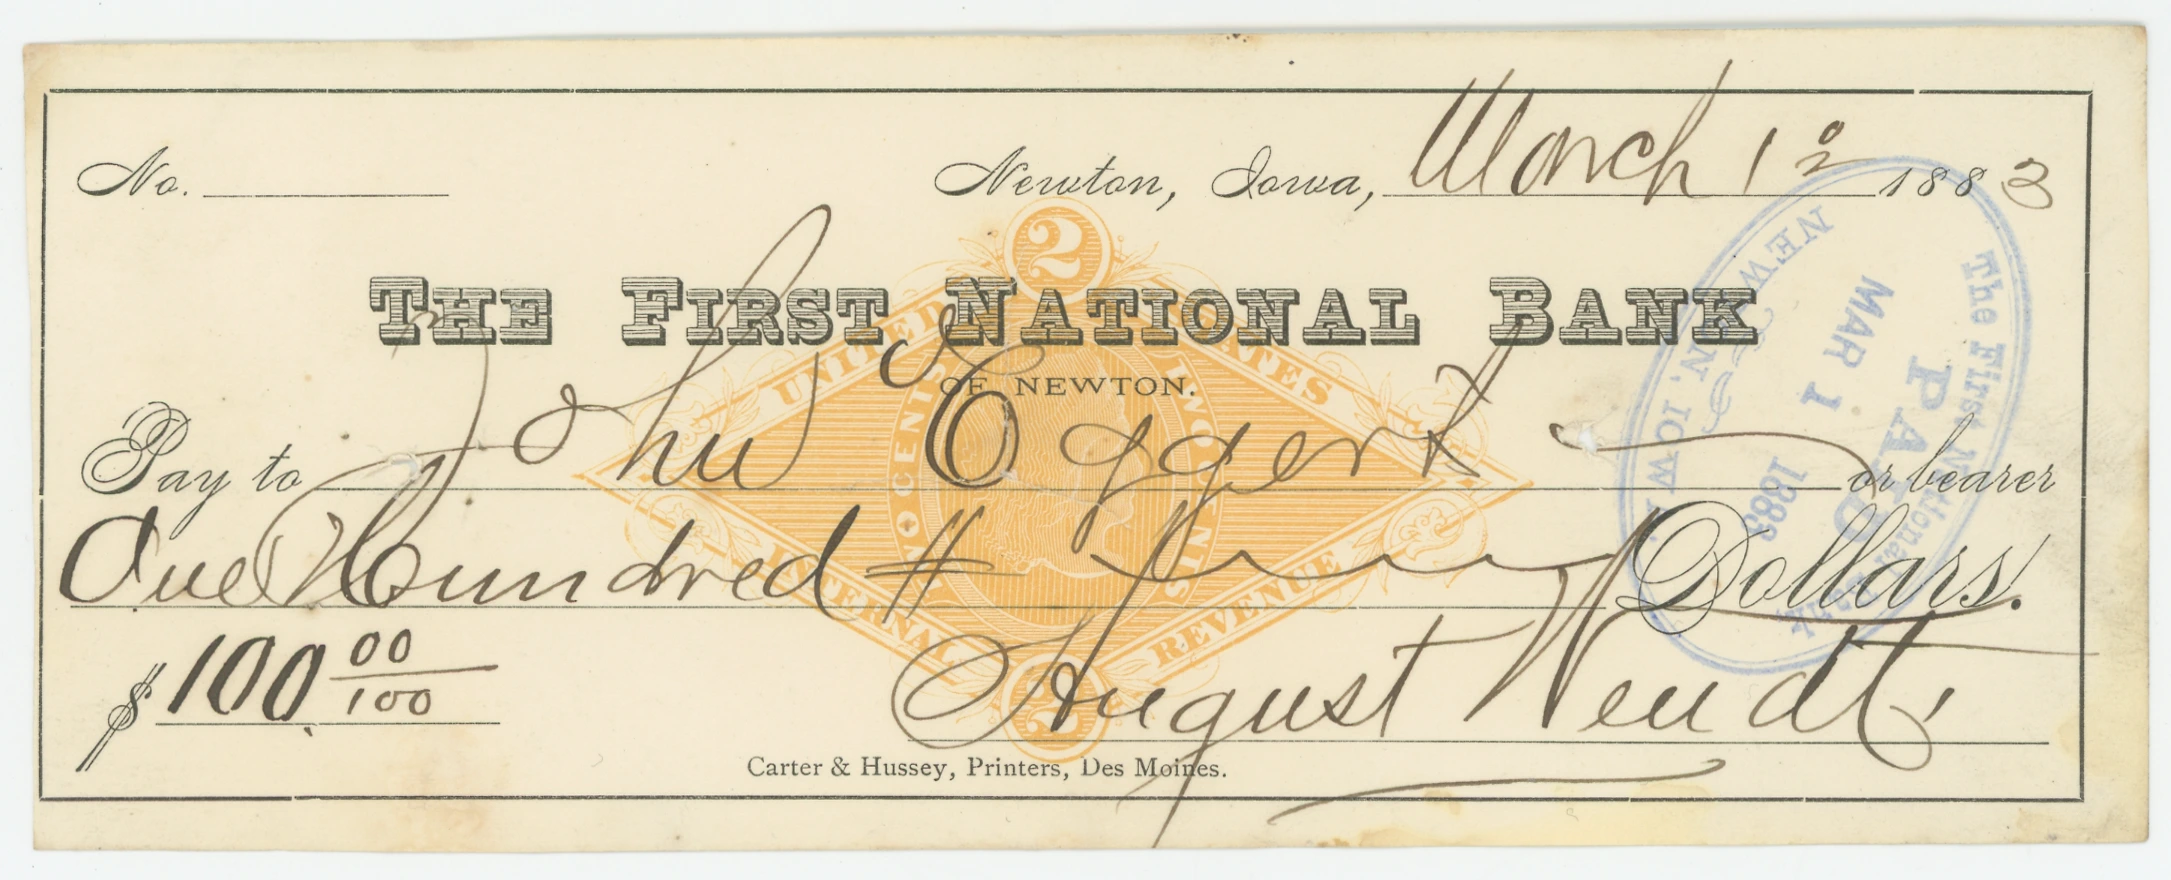 No.
Newton, Iowa, March 1st 1883
THE FIRST NATIONAL BANK
OF NEWTON.
Pay to John Eggert or bearer
One Hundred Dollars.
$ 100 00/100
August Wendt
Carter & Hussey, Printers, Des Moines.
2
UNITED STATES
TWO CENTS
TWO CENTS
INTERNAL REVENUE
2
The First National Bank
PAID
MAR 1
1883
NEWTON, IOWA.